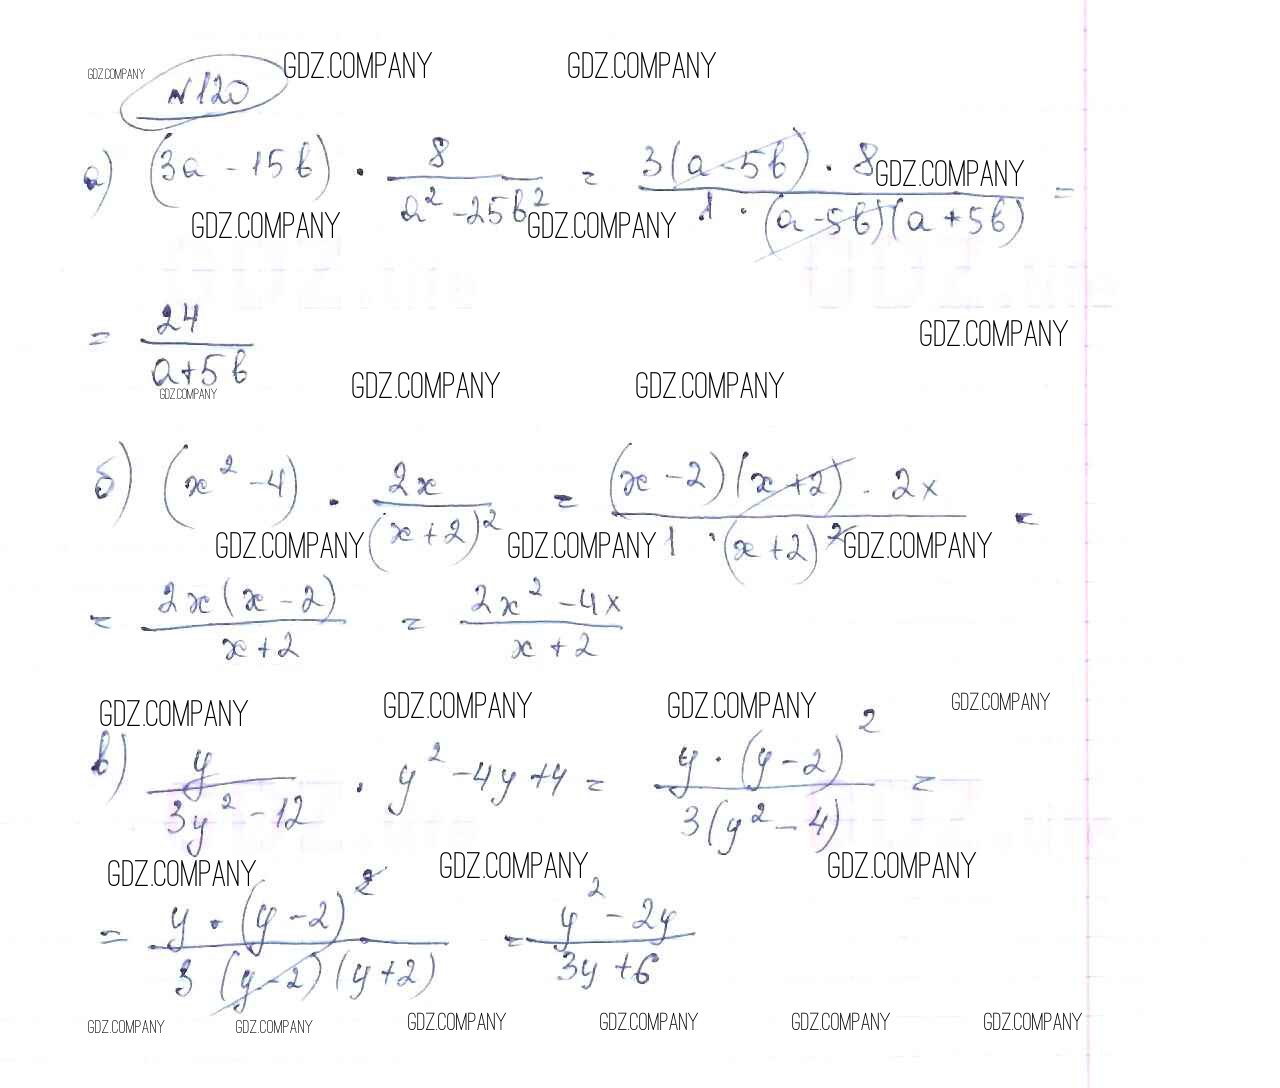 GDZ.COMPANY GDZ.COMPANY GDZ.COMPANY
№120
а) (3a - 15b) · 8/(a² - 25b²) = 3(a - 5b) · 8/(1 · (a - 5b)(a + 5b)) =
GDZ.COMPANY
GDZ.COMPANY GDZ.COMPANY
= 24/(a + 5b)
GDZ.COMPANY
GDZ.COMPANY GDZ.COMPANY GDZ.COMPANY
б) (x² - 4) · 2x/(x + 2)² = (x - 2)(x + 2) · 2x/(1 · (x + 2)²) =
GDZ.COMPANY GDZ.COMPANY GDZ.COMPANY
= 2x(x - 2)/(x + 2) = (2x² - 4x)/(x + 2)
GDZ.COMPANY GDZ.COMPANY GDZ.COMPANY GDZ.COMPANY
в) y/(3y² - 12) · y² - 4y + 4 = y · (y - 2)²/(3(y² - 4)) =
GDZ.COMPANY GDZ.COMPANY GDZ.COMPANY
= y · (y - 2)²/(3(y - 2)(y + 2)) = (y² - 2y)/(3y + 6)
GDZ.COMPANY GDZ.COMPANY GDZ.COMPANY GDZ.COMPANY GDZ.COMPANY GDZ.COMPANY